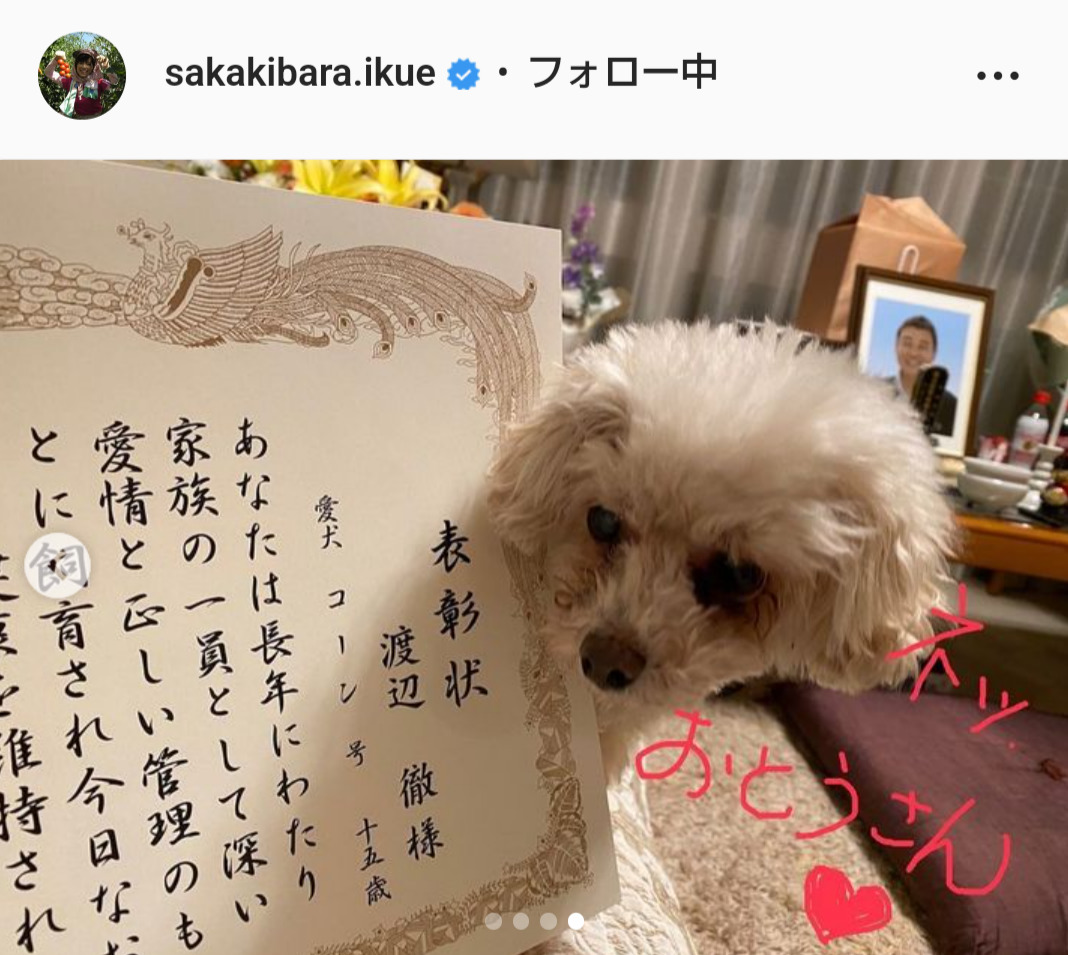 sakakibara.ikue • フォロー中
表彰状
渡辺 徹様
愛犬 コーン号 十五歳
あなたは長年にわたり
家族の一員として深い
愛情と正しい管理のも
とに飼育され今日な
を維持され
ネッ.
おとうさん